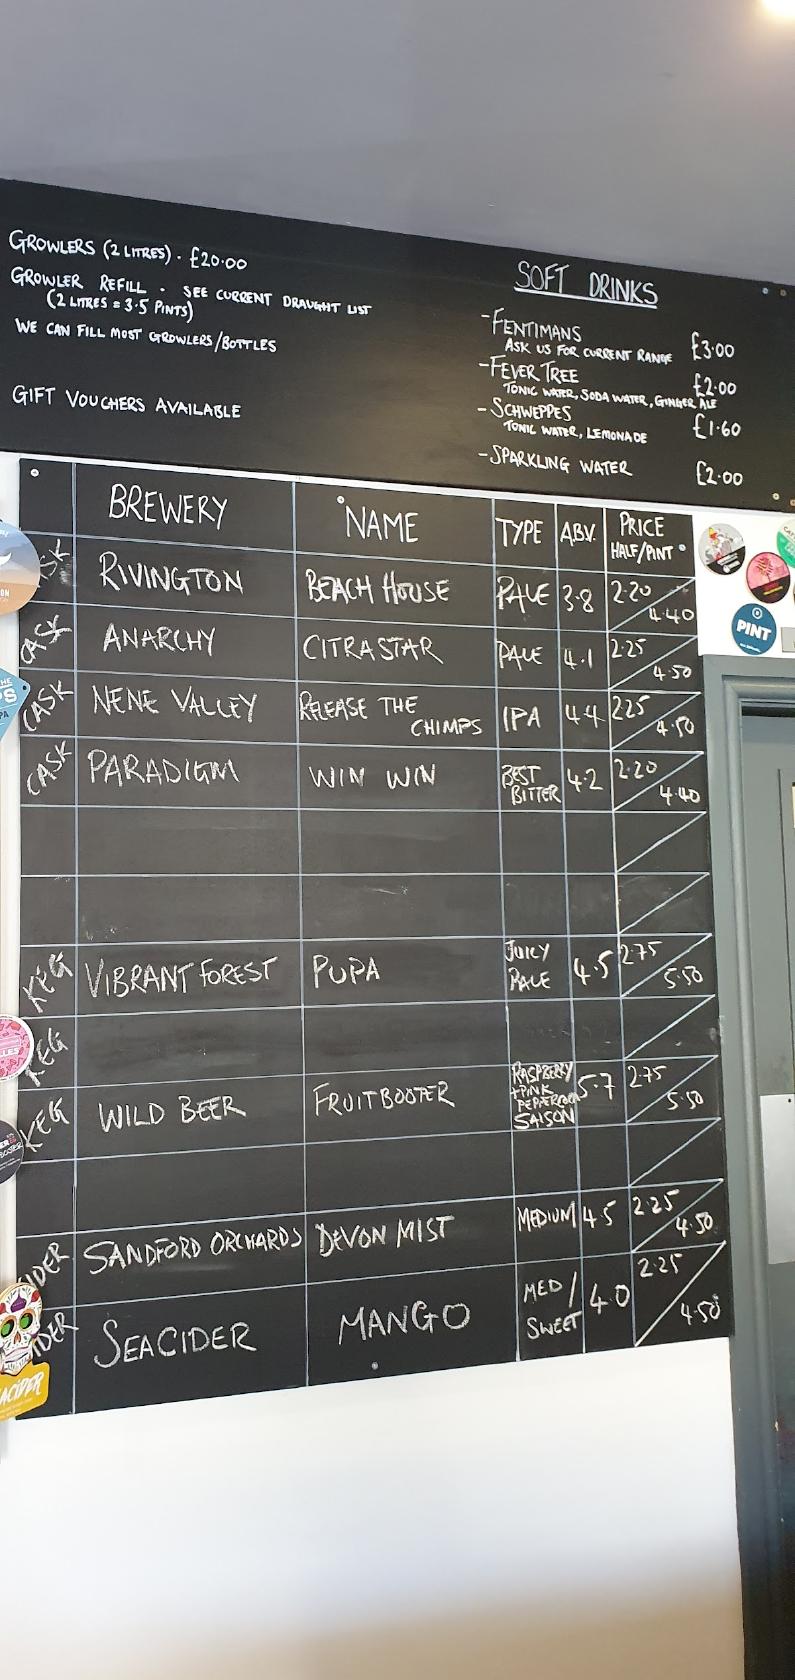 GROWLERS (2 LITRES) - £20.00
GROWLER REFILL - SEE CURRENT DRAUGHT LIST
(2 LITRES = 3.5 PINTS)
WE CAN FILL MOST GROWLERS/BOTTLES
GIFT VOUCHERS AVAILABLE
SOFT DRINKS
-FENTIMANS £3.00
ASK US FOR CURRENT RANGE
-FEVER TREE £2.00
TONIC WATER, SODA WATER, GINGER ALE
-SCHWEPPES £1.60
TONIC WATER, LEMONADE
-SPARKLING WATER £2.00
BREWERY NAME TYPE ABV. PRICE
HALF/PINT
RIVINGTON BEACH HOUSE PALE 3.8 2.20 4.40
CASK ANARCHY CITRA STAR PALE 4.1 2.25 4.50
CASK NENE VALLEY RELEASE THE CHIMPS IPA 4.4 225 4.50
CASK PARADIGM WIN WIN BEST BITTER 4.2 2.20 4.40
KEG VIBRANT FOREST PUPA JUICY PALE 4.5 2.75 5.50
KEG
KEG WILD BEER FRUITBOOTER RASPBERRY +PINK PEPPERCORN SAISON 5.7 2.75 5.50
SANDFORD ORCHARDS DEVON MIST MEDIUM 4.5 2.25 4.50
SEACIDER MANGO MED/SWEET 4.0 2.25 4.50
PINT